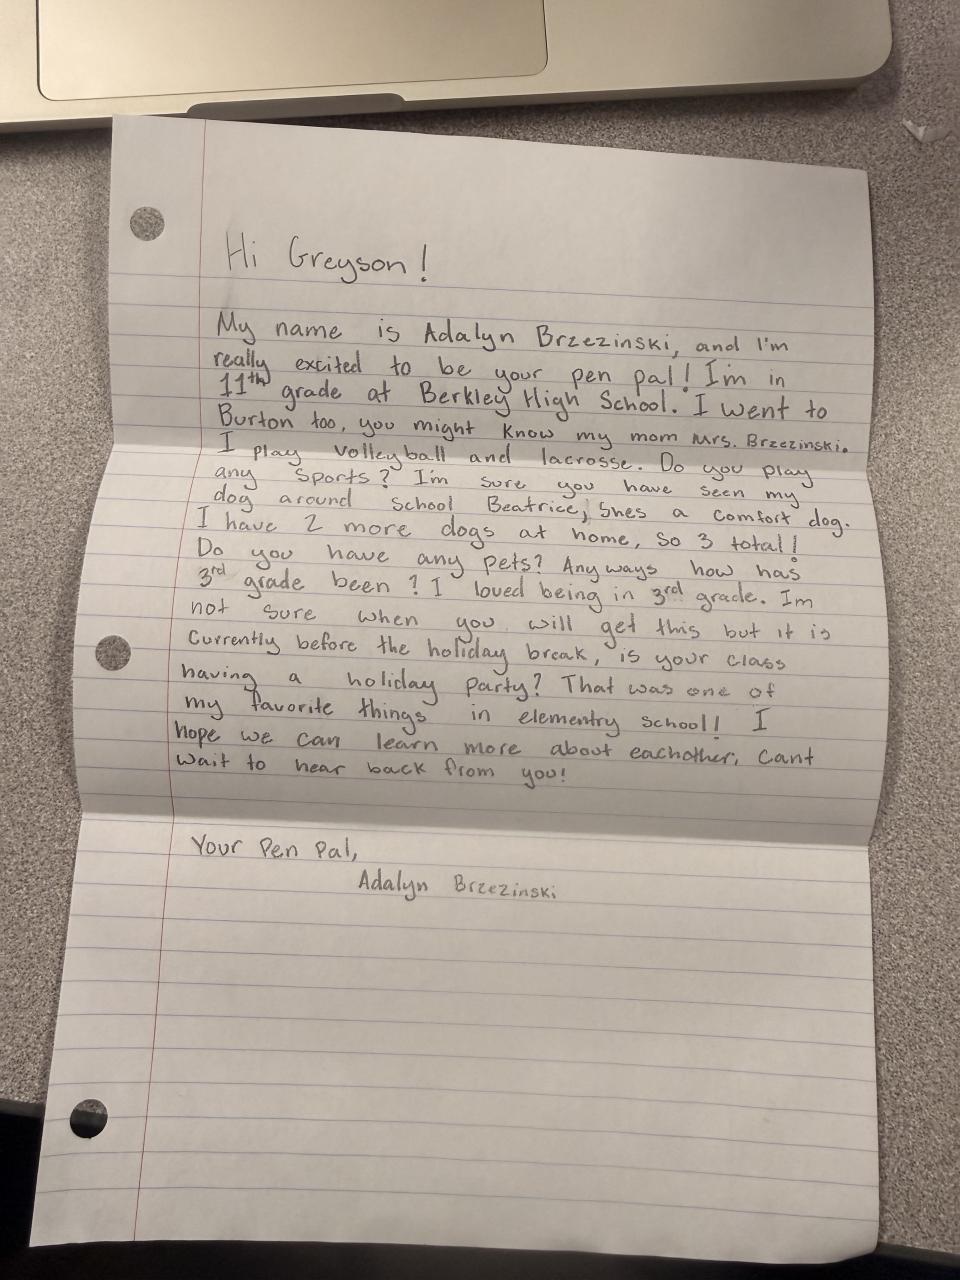 Hi Greyson!
My name is Adalyn Brzezinski, and I'm
really excited to be your pen pal! I'm in
11th grade at Berkley High School. I went to
Burton too, you might know my mom Mrs. Brzezinski.
I play volleyball and lacrosse. Do you play
any sports? I'm sure you have seen my
dog around school Beatrice, shes a comfort dog.
I have 2 more dogs at home, so 3 total!
Do you have any pets? Anyways how has
3rd grade been? I loved being in 3rd grade. Im
not sure when you will get this but it is
currently before the holiday break, is your class
having a holiday party? That was one of
my favorite things in elementry school! I
hope we can learn more about eachother, cant
wait to hear back from you!
Your Pen Pal,
Adalyn Brzezinski